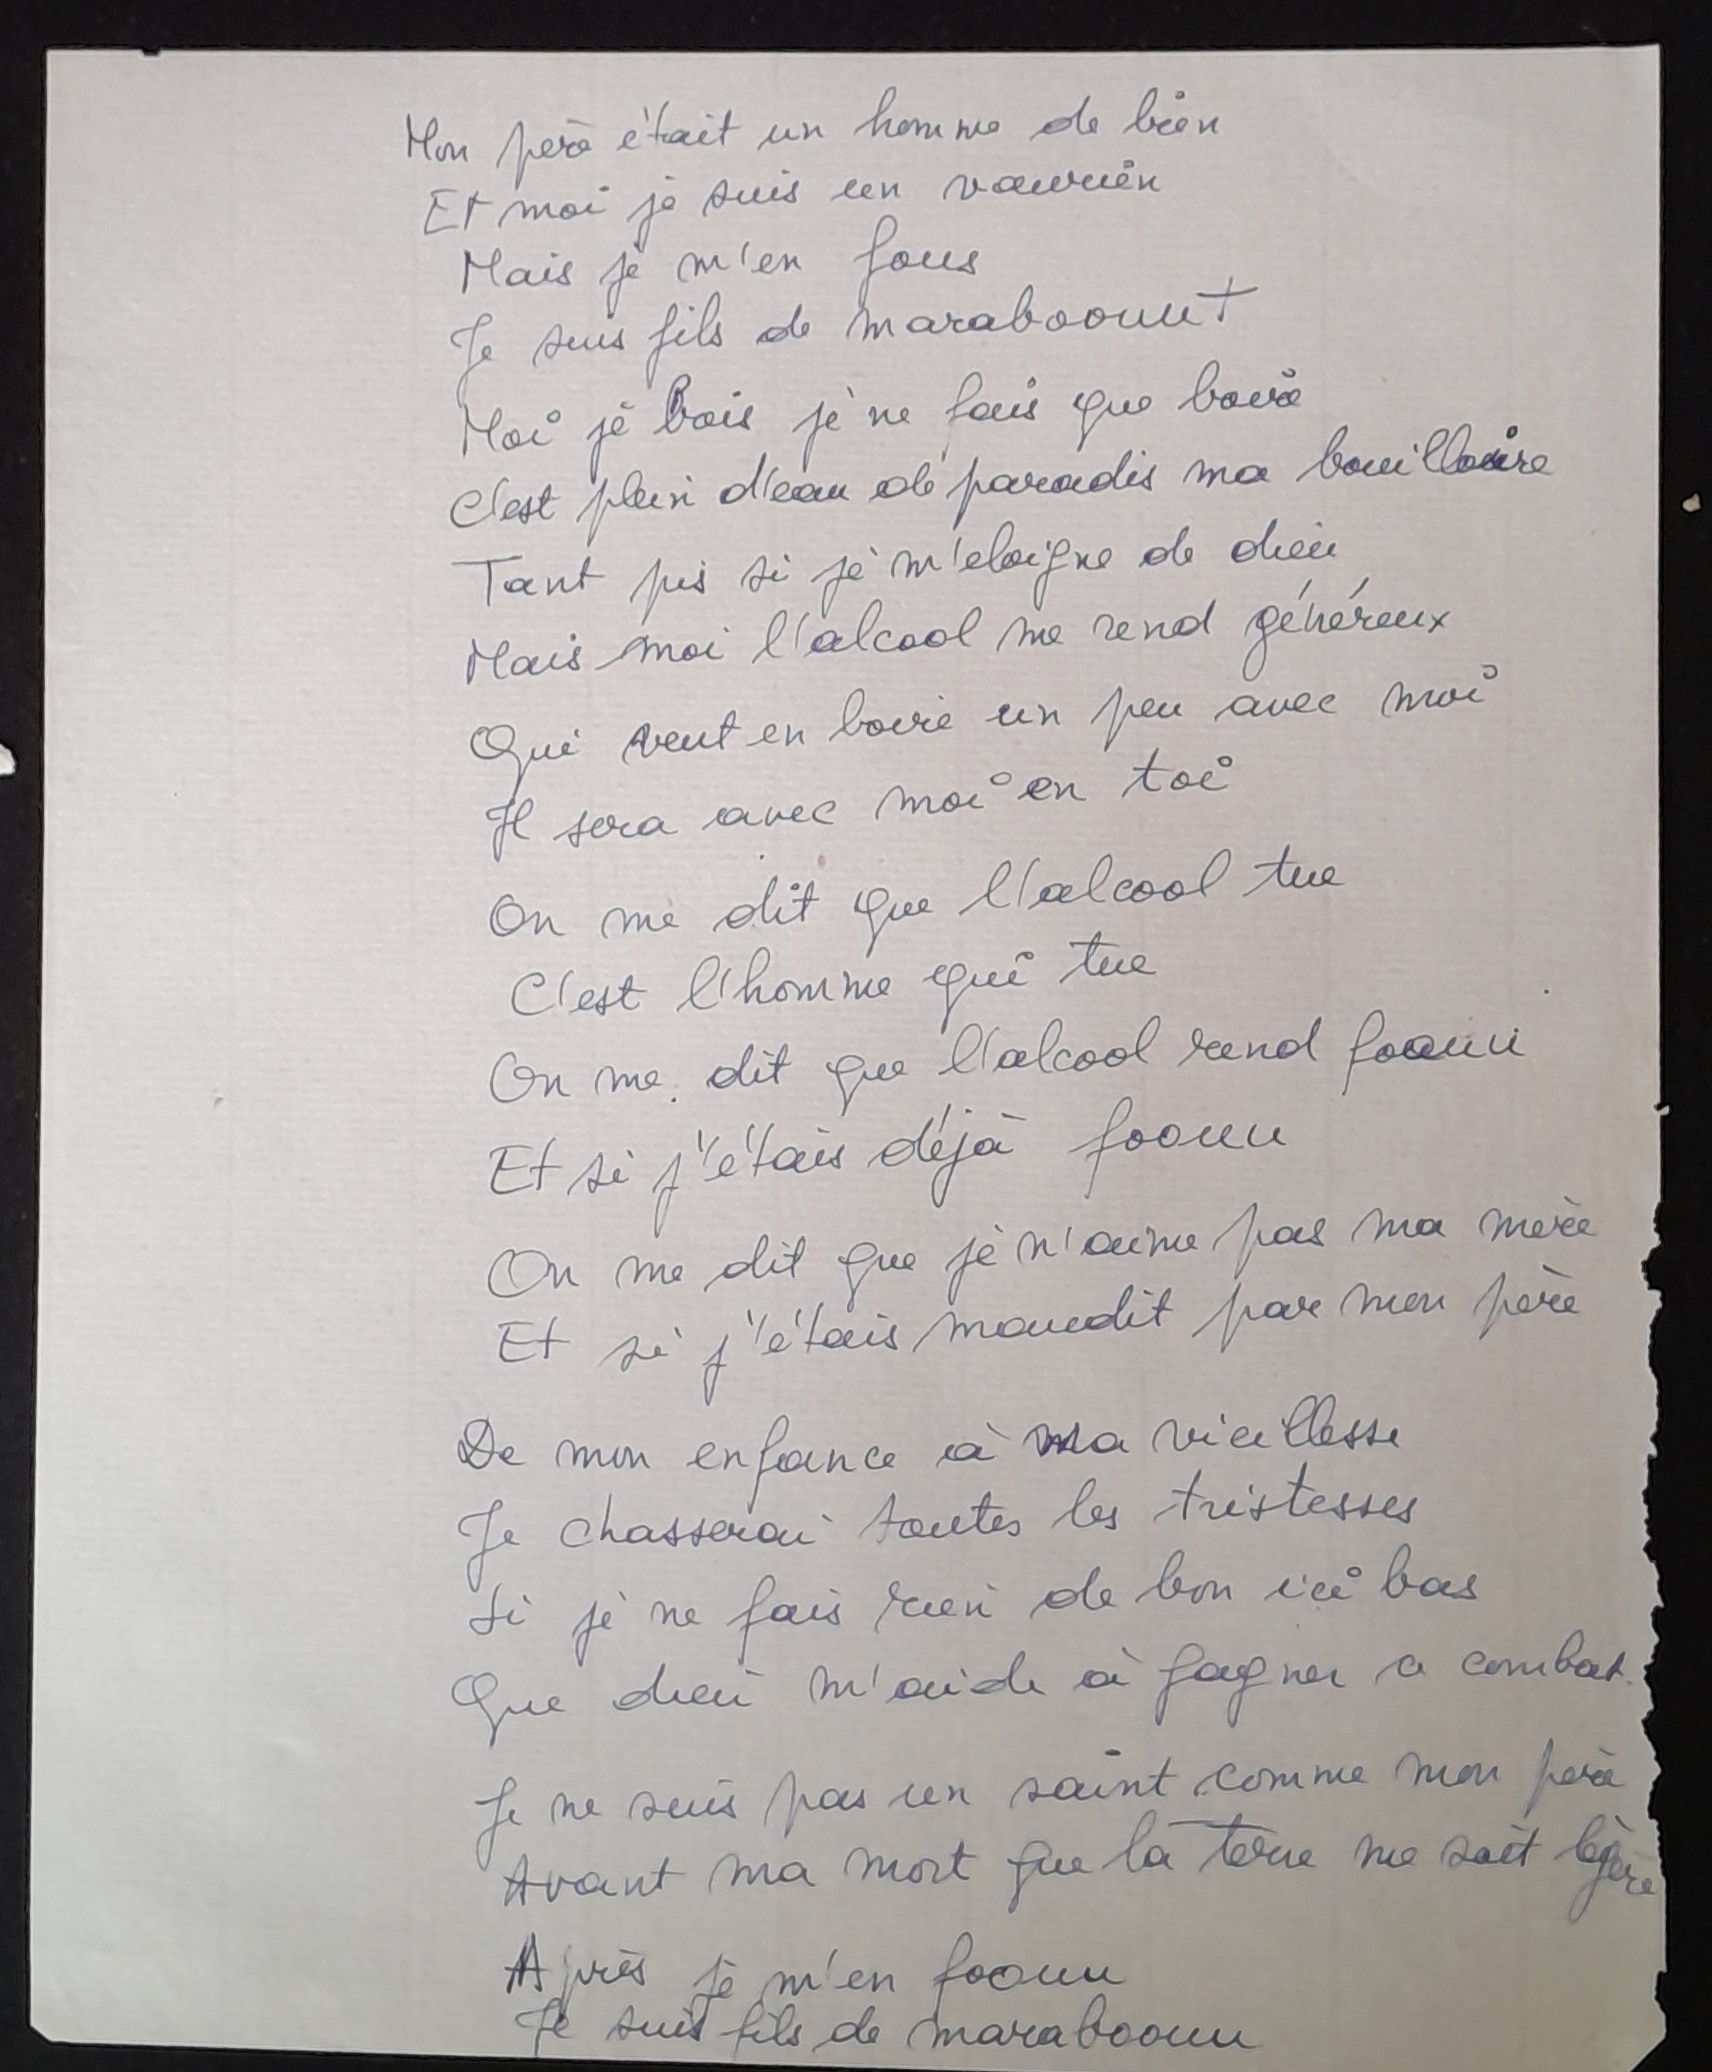 Mon père était un homme de bien
Et moi je suis un vaurien
Mais je m'en fous
Je suis fils de maraboouut
Moi je bois je ne fais que boire
C'est plein d'eau de paradis ma bouilloire
Tant pis si je m'eloigne de dieu
Mais moi l'alcool me rend généreux
Qui veut en boire un peu avec moi
Il sera avec moi en toi
On me dit que l'alcool tue
C'est l'homme qui tue
On me dit que l'alcool rend foouu
Et si j'étais déjà foouu
On me dit que je n'aime pas ma mère
Et si j'étais maudit par mon père
De mon enfance à ma vieillesse
Je chasserai toutes les tristesses
Si je ne fais rien de bon ici bas
Que dieu m'aide à gagner ce combat.
Je ne suis pas un saint comme mon père
Avant ma mort que la terre me soit légère
Après je m'en foouu
Je suis fils de maraboouu